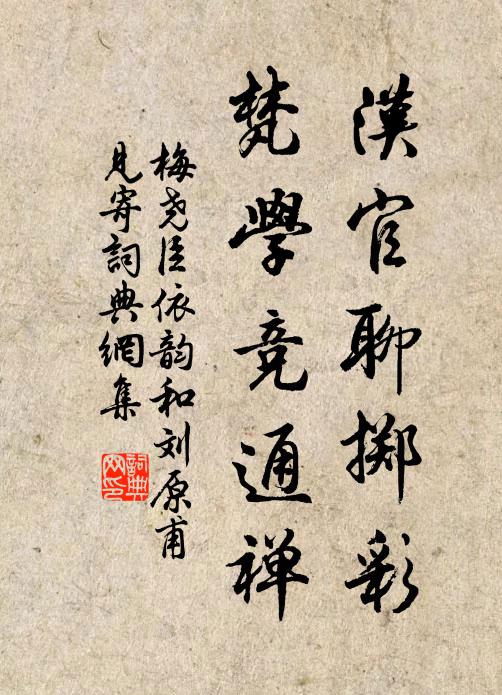 漢官聊擲彩
梵學竞通禅
梅尧臣依韵和刘原甫
見寄詞典網集
詞典網印